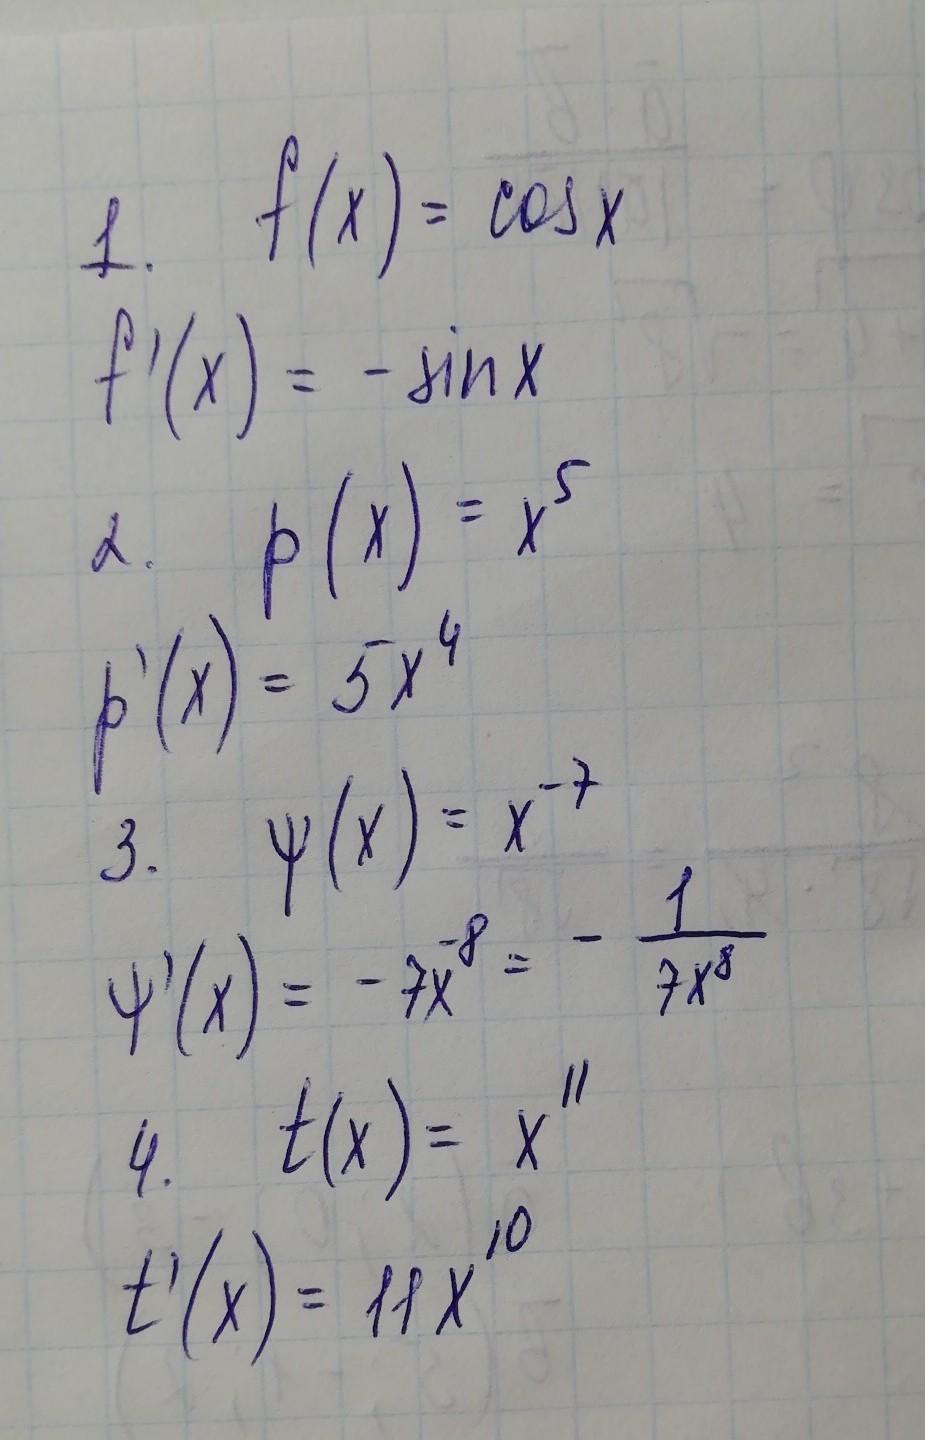 1. f(x) = cosx
f'(x) = -sinx
2. p(x) = x^5
p'(x) = 5x^4
3. ψ(x) = x^-7
ψ'(x) = -7x^-8 = - 1/7x^8
4. t(x) = x^11
t'(x) = 11x^10